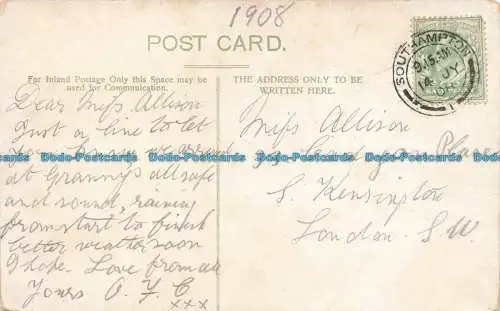 1908
POST CARD.
For Inland Postage Only this Space may be
used for Communication.
THE ADDRESS ONLY TO BE
WRITTEN HERE.
SOUTHAMPTON
9.15 AM
14 JY
08
1
Dear Miss Allison
Just a line to let
you know we arrived
at Granny's all safe
and sound, raining
from start to finish
better weather soon
I hope. Love from all
Yours O. Y. C
xxx
Miss Allison
Place
S. Kensington
London. S.W.
Dodo-Postcards Dodo-Postcards Dodo-Postcards Dodo-Postcards
Dodo-Postcards Dodo-Postcards Dodo-Postcards Dodo-Postcards